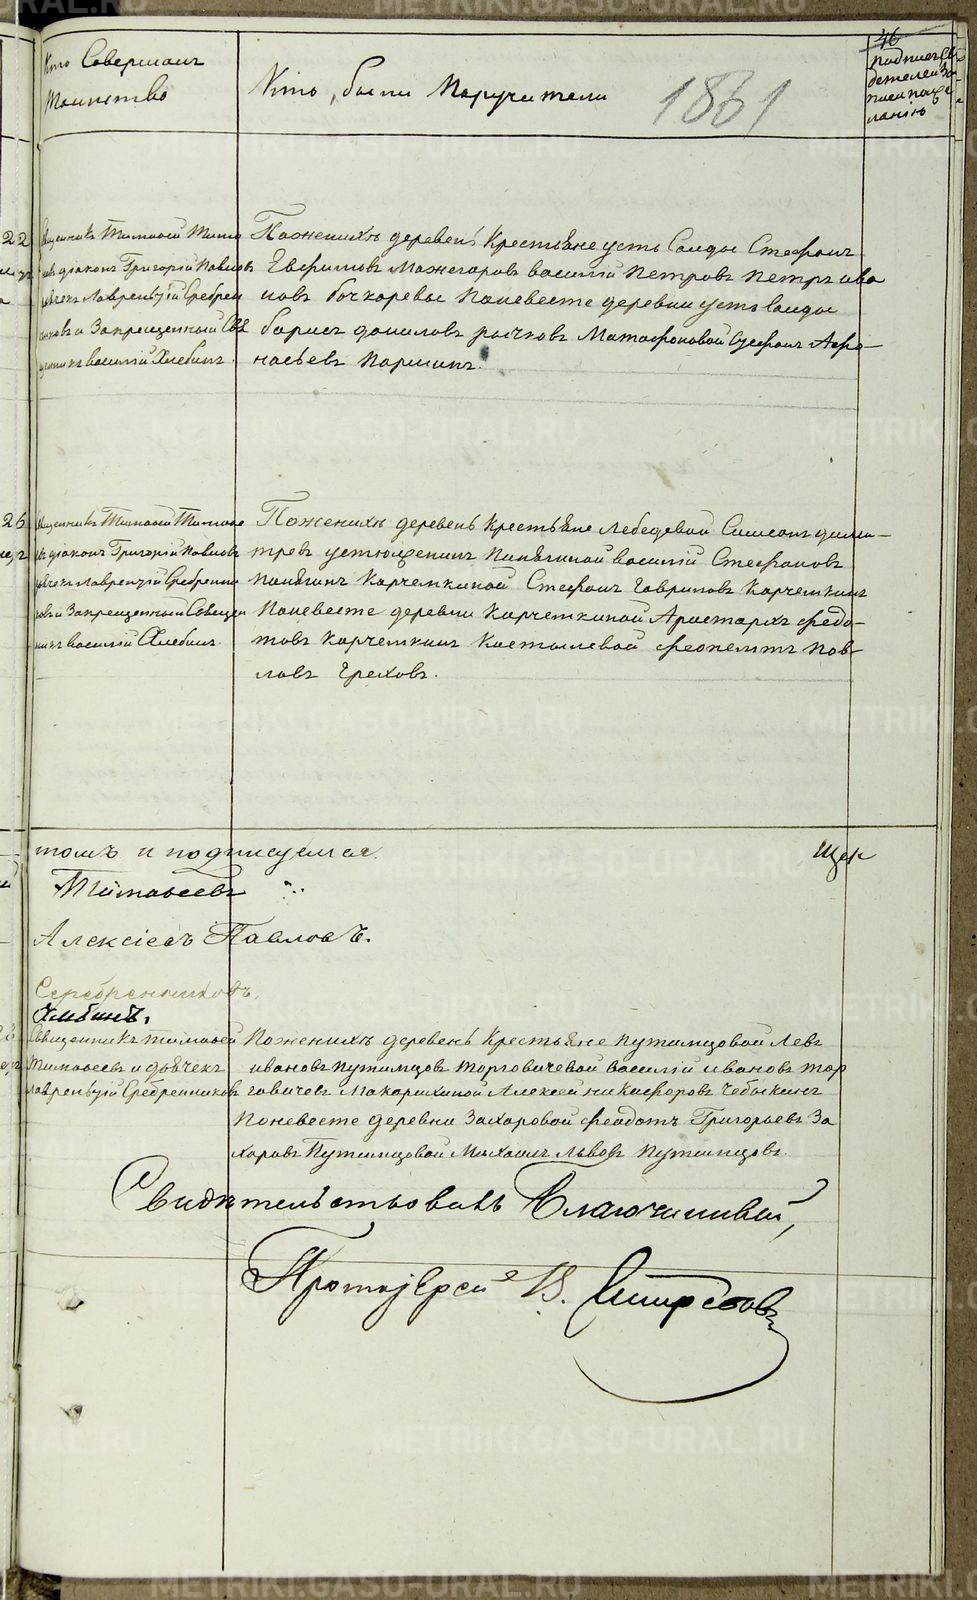 46
Кто Совершалъ
Таинство
Кто были Поручители
1861
подпись сви
детелей за
писи по же
ланію
22
Священникъ Тимофей Тимо
діаконъ Григорій Павловъ
дьячекъ Лаврентій Серебрен
никовъ и Запрещенный Свя
щенникъ василій Хлебинъ.
Пожениху деревень Крестьяне усть Салды Стефанъ
Евфимовъ Мажегоровъ василій Петровъ Петръ ива
новъ бочкаревы Поневесте деревни усть Салды
борисъ даниловъ рычковъ Матафоновой Стефанъ Афо-
насьевъ Паршинъ.
26
Священникъ Тимофей Тимофе
въ діаконъ Григорій Павловъ
дьячекъ Лаврентій Серебренни
ковъ и Запрещенный Священ
никъ василій Хлебинъ.
Пожениху деревень Крестьяне Лебедевой Симеонъ дими-
тревъ устюженинъ Панячиной василій Стефановъ
Панячинъ Карчемкиной Стефанъ Гавриловъ Карчемкинъ
Поневесте деревни Карчемкиной Аристархъ федо-
товъ Карчемкинъ Костылевой феопемтъ Пав-
ловъ Греховъ.
томъ и подписуемся.
Щек
Тимофеевъ
Алексіевъ Павловъ.
Серебренниковъ.
Хлебинъ.
Священникъ тимофей
Тимофеевъ и дьячекъ
лаврентій Серебренниковъ
Пожениху деревень Крестьяне путимцовой Левъ
ивановъ путимцовъ Торговичевой василій ивановъ тор
говичевъ Макарихиной Алексей никифоровъ Чебыкинъ
Поневесте деревни Захаровой феодотъ Григорьевъ За
харовъ Путимцовой Михаилъ львовъ путимцовъ.
Свидѣтельствовалъ Благочинный,
Протоіерей В. Смирновъ
METRIKI.GASO-URAL.RU